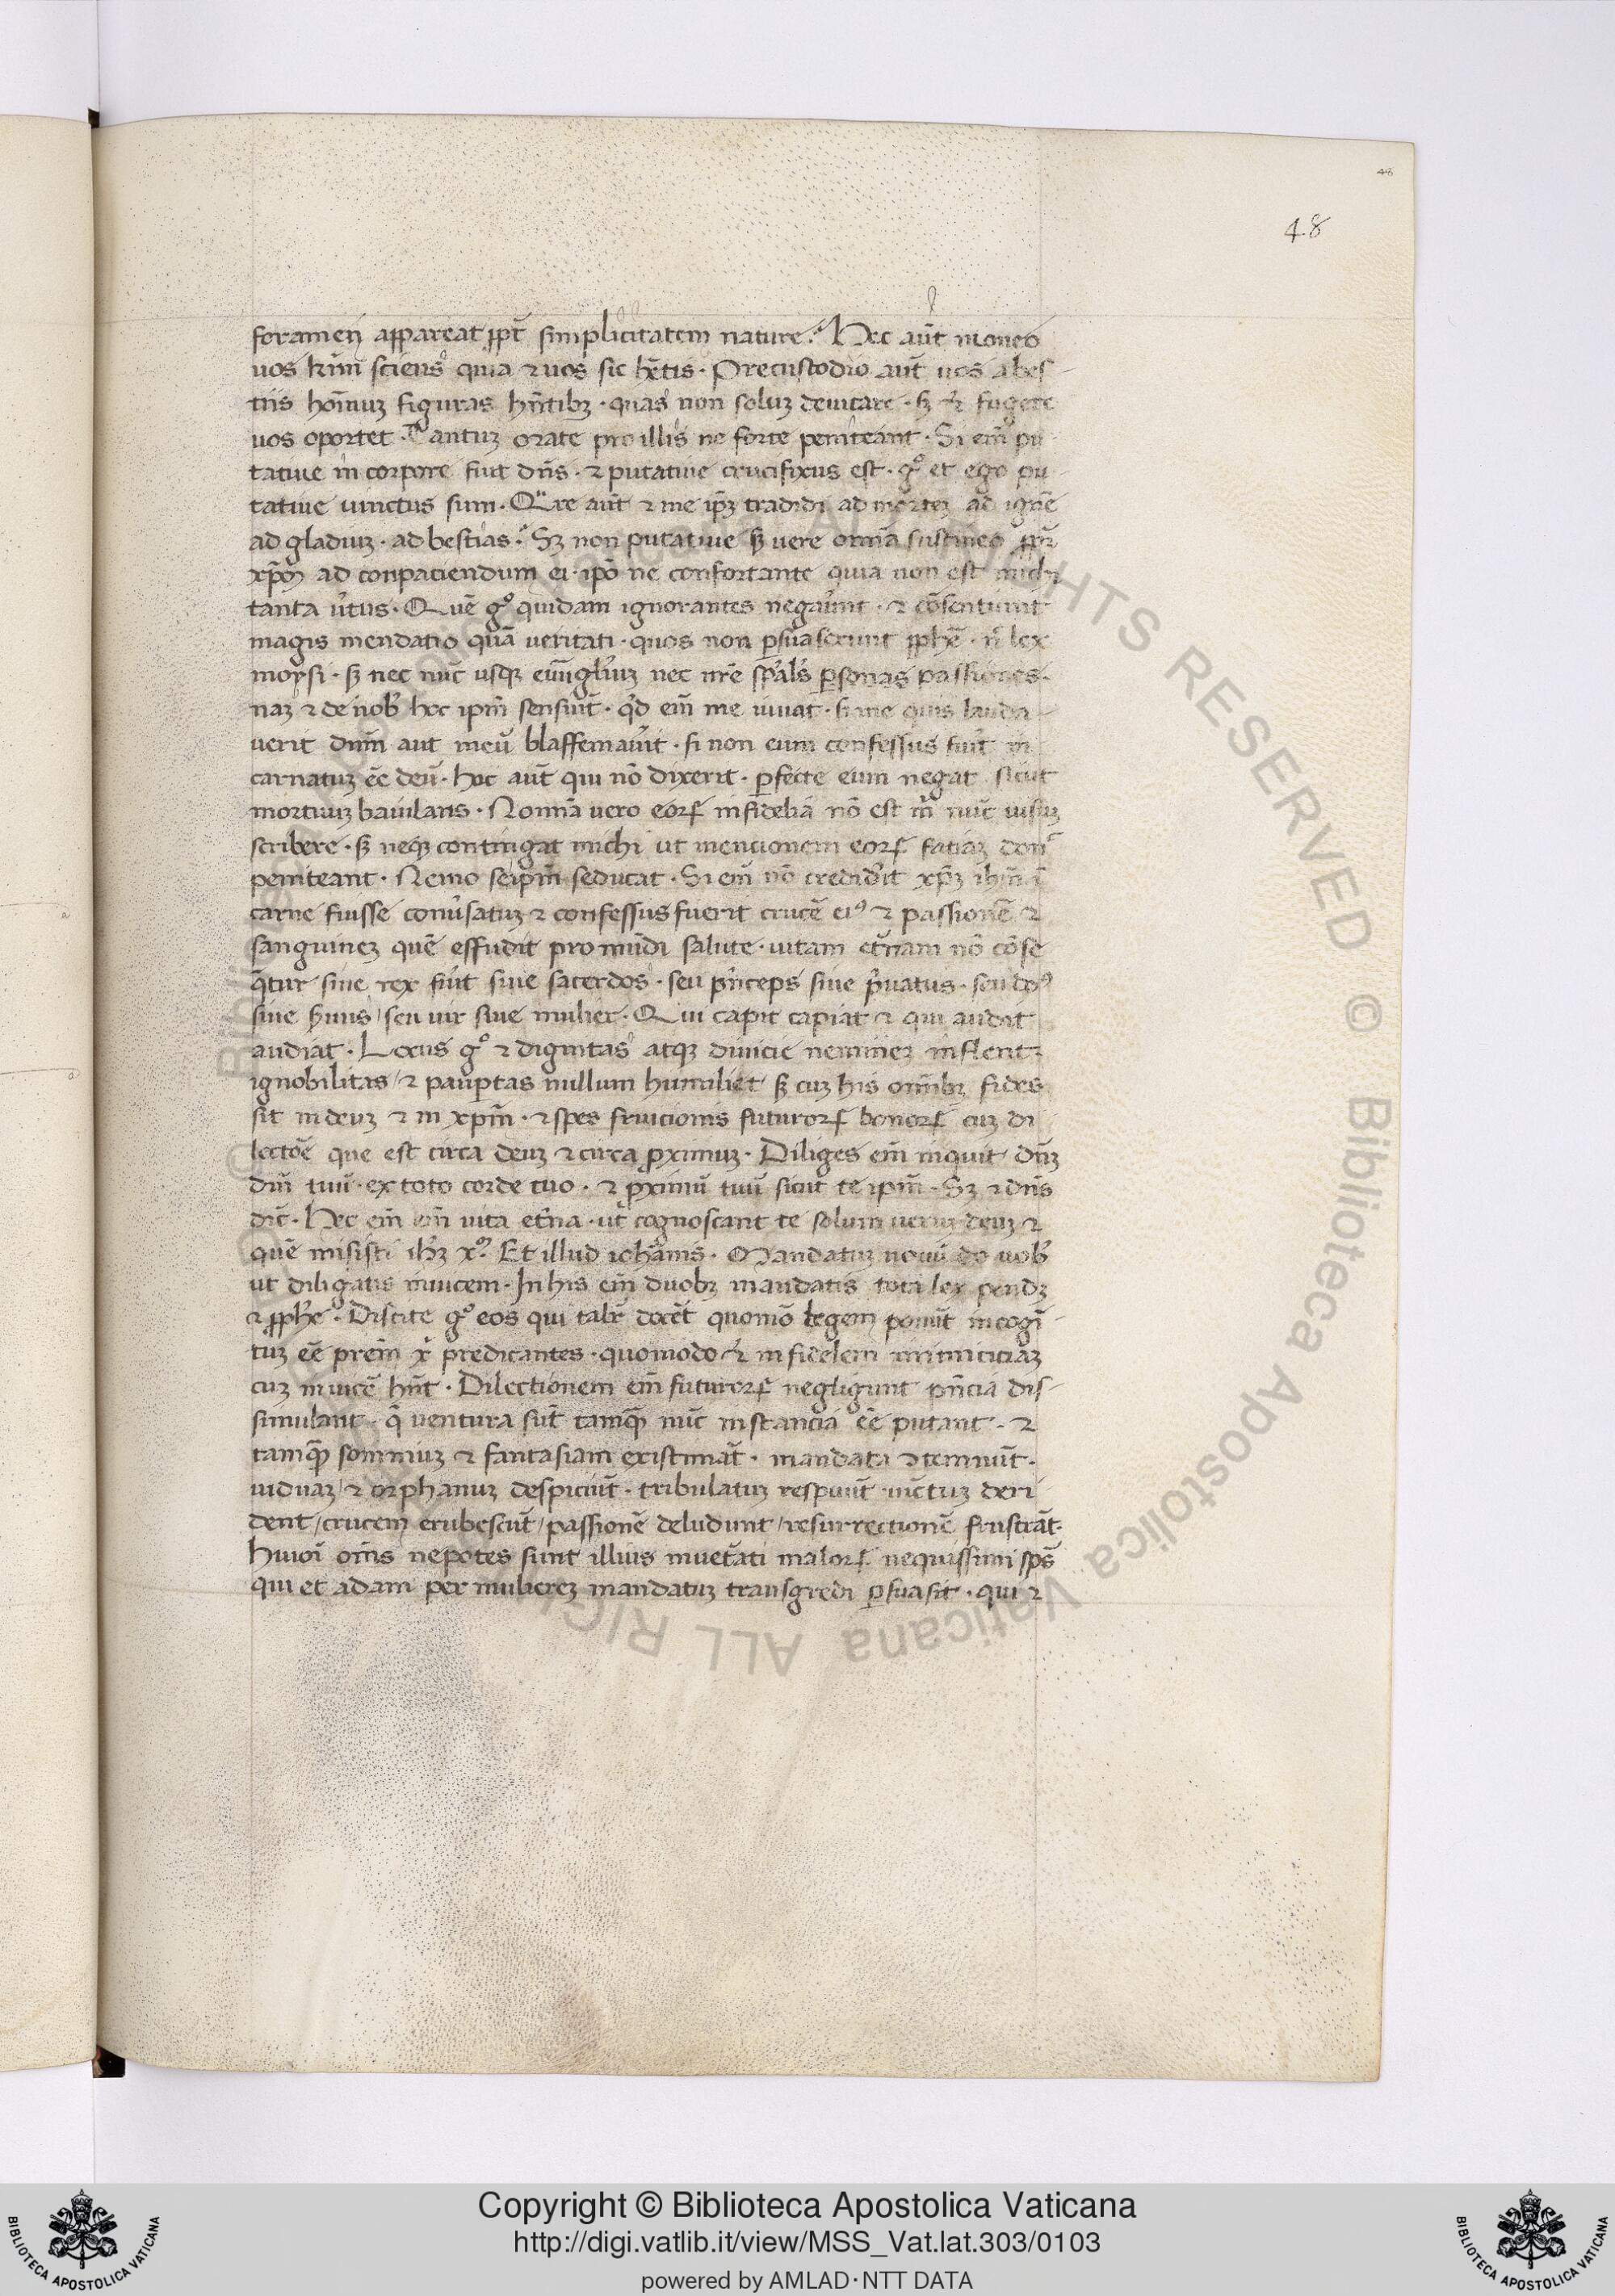 48
48
foramen appareat ꝓpt̄ simplicitatem nature. Hec aut̄ moneo
uos kr̄mi sciens quia ⁊ uos sic hētis · Precustodio aut̄ uos a bes-
tiis hoīnuꝫ figuras hn̄tibꝫ · quas non soluꝫ deuitare · sꝫ ⁊ fugere
uos oportet · Tantuꝫ orate pro illis ne forte peniteant · Si em̄ pu
tatiue in corpore fuit dn̄s · ⁊ putatiue crucifixus est · gͦ et ego pu
tatiue uinctus sum · Qᵃre aut̄ ⁊ me ip̄ꝫ tradidi ad morteꝫ ad ignē
ad gladiuꝫ · ad bestias · Sꝫ non putatiue sꝫ uere om̄ia sustineo ꝓpt̄
xp̄m ad conpaciendum ei · ip̄o me confortante quia non est michi
tanta u̓tus · Quē gͦ quidam ignorantes negau̓unt · ⁊ cōsentiunt
magis mendatio quā ueritati · quos non ꝑsuaserunt ꝓphē · nͥ lex
moysi · sꝫ nec nūc usqꝫ euūgliuꝫ nec nr̄e sp̄ales ꝑsonas passiones ·
naꝫ ⁊ de nob̓ hoc ip̄m sensiunt · qͥd em̄ me iuuat · si me quis lauda
uerit dūm aut̄ meū blaffemau̓it · si non eum confessus fuit in
carnatuꝫ eē deū · hoc aut̄ qui nō dixerit · ꝑfecte eum negat sicut
mortuuꝫ bauilans · Nomīa vero eoꝝ infidelia nō est m̄ nūc uisuꝫ
scribere · sꝫ neqꝫ contingat michi ut mencionem eoꝝ fatiaꝫ donͨ
peniteant · Nemo seip̄m seducat · Si em̄ nō credid̓it xp̄ꝫ ih̄m ī
carne fuisse conu̓satuꝫ ⁊ confessus fuerit crucē ei⁹ ⁊ passionē ⁊
sanguineꝫ quē effudit pro mūdi salute · uitam et̓nam nō cōse
q̄tur siue rex fuit siue sacerdos · seu pͥnceps siue pͥuatus · seu dn̄⁹
siue s̓uus / seu uir siue mulier · Qui capit capiat ⁊ qui audit
audiat · Locus gͦ ⁊ dignitas atqꝫ diuicie nemineꝫ inflent ·
ignobilitas / ⁊ paup̱tas nullum humiliet sꝫ cuꝫ his om̄ibꝫ fides
sit in deuꝫ ⁊ in xp̄m · ⁊ spes fruicionis futuroꝝ bonoꝝ cuꝫ di
lectōe que est circa deuꝫ ⁊ circa ꝓximuꝫ · Diliges em̄ inquit dn̄ꝫ
dm̄ tuū · ex toto corde tuo · ⁊ ꝓximū tuū sicut te ip̄m · Sꝫ ⁊ dn̄s
dic̄ · Hec em̄ em̄ uita et̓na · ut cognoscant te solum ueruꝫ deuꝫ ⁊
quē misisti ih̄ꝫ xͦ · Et illud ioh̄anis · Mandatuꝫ nouū do uob̓
ut diligatis inuicem · In his em̄ duobꝫ mandatis tota lex pendꝫ
⁊ ꝓphe · Discite gͦ eos qui talr̄ docēt quomō legem ponūt incogī-
tuꝫ eē prēm xͥ predicantes · quomodo ⁊ infidelem inimiciciaꝫ
cuꝫ inuicē hn̄t · Dilectionem em̄ futuroꝝ negligunt pn̄cia dis-
simulant · q̄ uentura sūt tamqꝫ nūc instancia eē putant · ⁊
tamqꝫ somniuꝫ ⁊ fantasiam existimāt · mandata ↄtemnūt ·
uiduaꝫ / ⁊ orphanuꝫ despiciūt · tribulatuꝫ respuūt · uīctuꝫ deri
dent / crucem erubescūt / passionē deludunt / resurrectionē frustrāt ·
huioī om̄s nepotes sunt illius inuet̓ati maloꝝ nequissimi sp̄s
qui et adam per muliereꝫ mandatuꝫ transgredi ꝑsuasit · qui ⁊
© Biblioteca Apostolica Vaticana ALL RIGHTS RESERVED
Copyright © Biblioteca Apostolica Vaticana
http://digi.vatlib.it/view/MSS_Vat.lat.303/0103
powered by AMLAD·NTT DATA
BIBLIOTECA APOSTOLICA VATICANA
BIBLIOTECA APOSTOLICA VATICANA